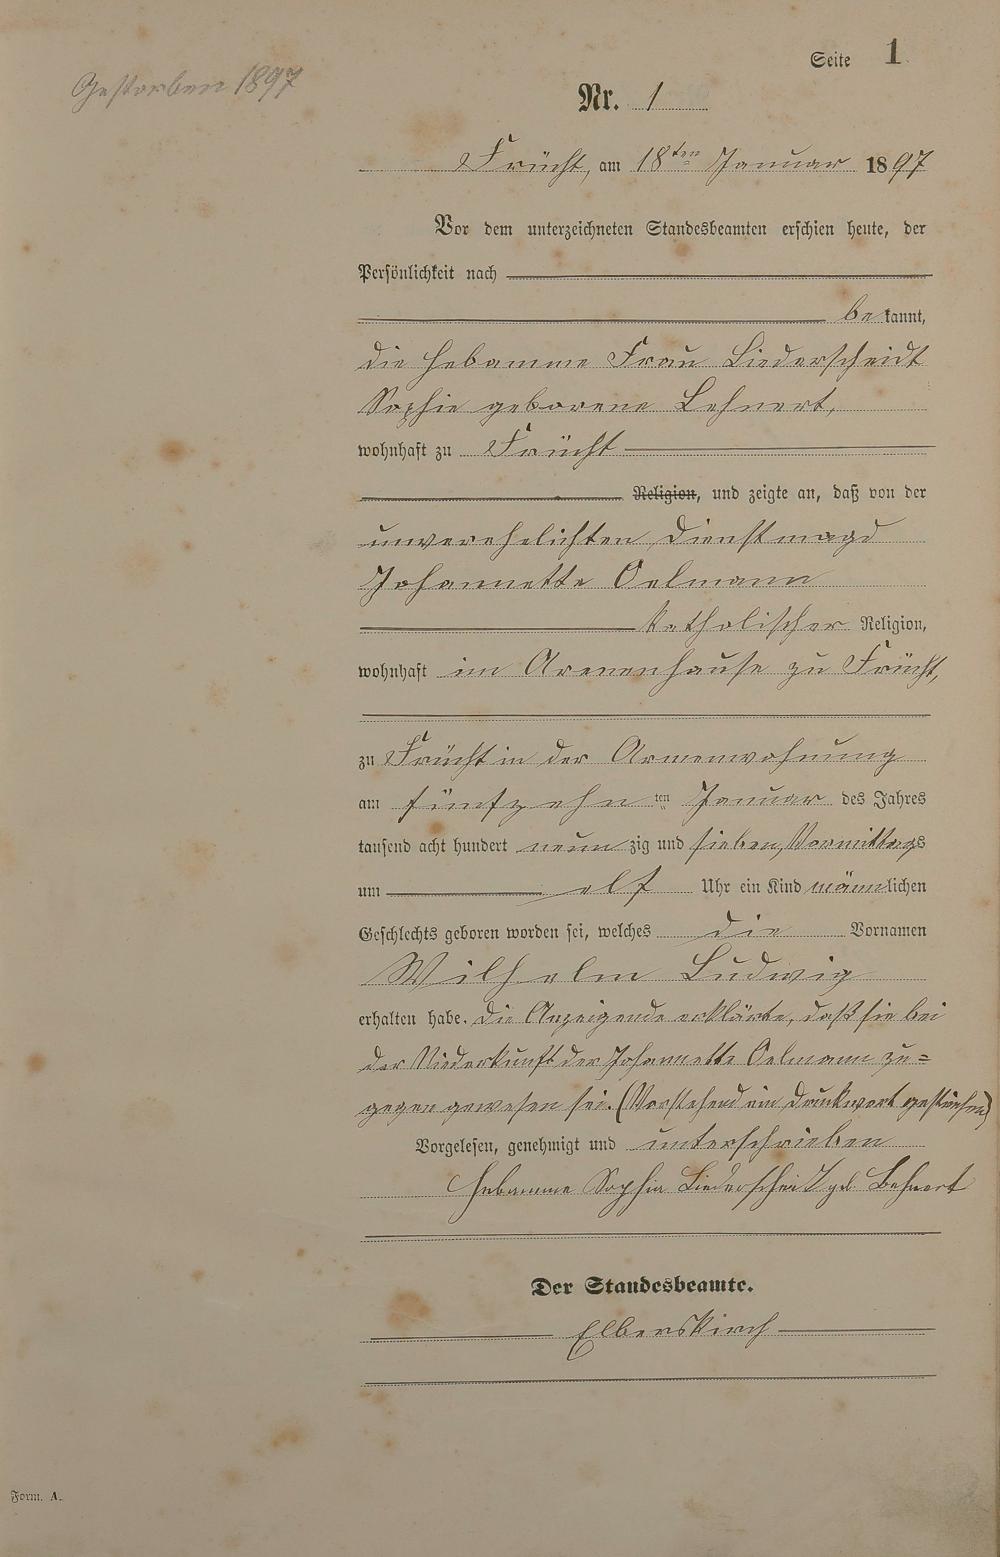 Seite 1
Gestorben 1897
Nr. 1
Frücht, am 18ten Januar 1897
Vor dem unterzeichneten Standesbeamten erschien heute, der
Persönlichkeit nach
bekannt,
die Hebamme Frau Liederscheidt
Sophie geborene Lehnert,
wohnhaft zu Frücht
Religion, und zeigte an, daß von der
unverehelichten Dienstmagd
Johannette Oelmann
katholischer Religion,
wohnhaft im Armenhause zu Frücht,
zu Frücht in der Armenwohnung
am fünfzehnten Januar des Jahres
tausend acht hundert neunzig und sieben, Vormittags
um elf Uhr ein Kind männlichen
Geschlechts geboren worden sei, welches die Vornamen
Wilhelm Ludwig
erhalten habe. Die Anzeigende erklärte, daß sie bei
der Niederkunft der Johannette Oelmann zu=
gegen gewesen sei. (Vorstehend ein Druckwort gestrichen)
Vorgelesen, genehmigt und unterschrieben
Hebamme Sophia Liederscheit geb. Lehnert
Der Standesbeamte.
Elberskirch
Form. A.